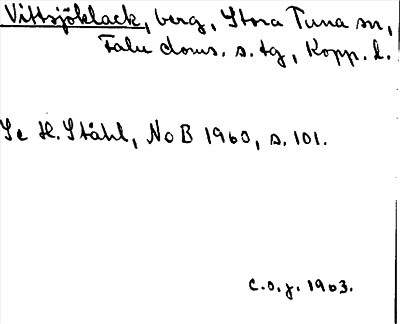 Vittsjöklack, berg, Stora Tuna sn,
Falu doms. s. tg, Kopp. l.
Se H. Ståhl, NoB 1960, s. 101.
C.O.J. 1963.